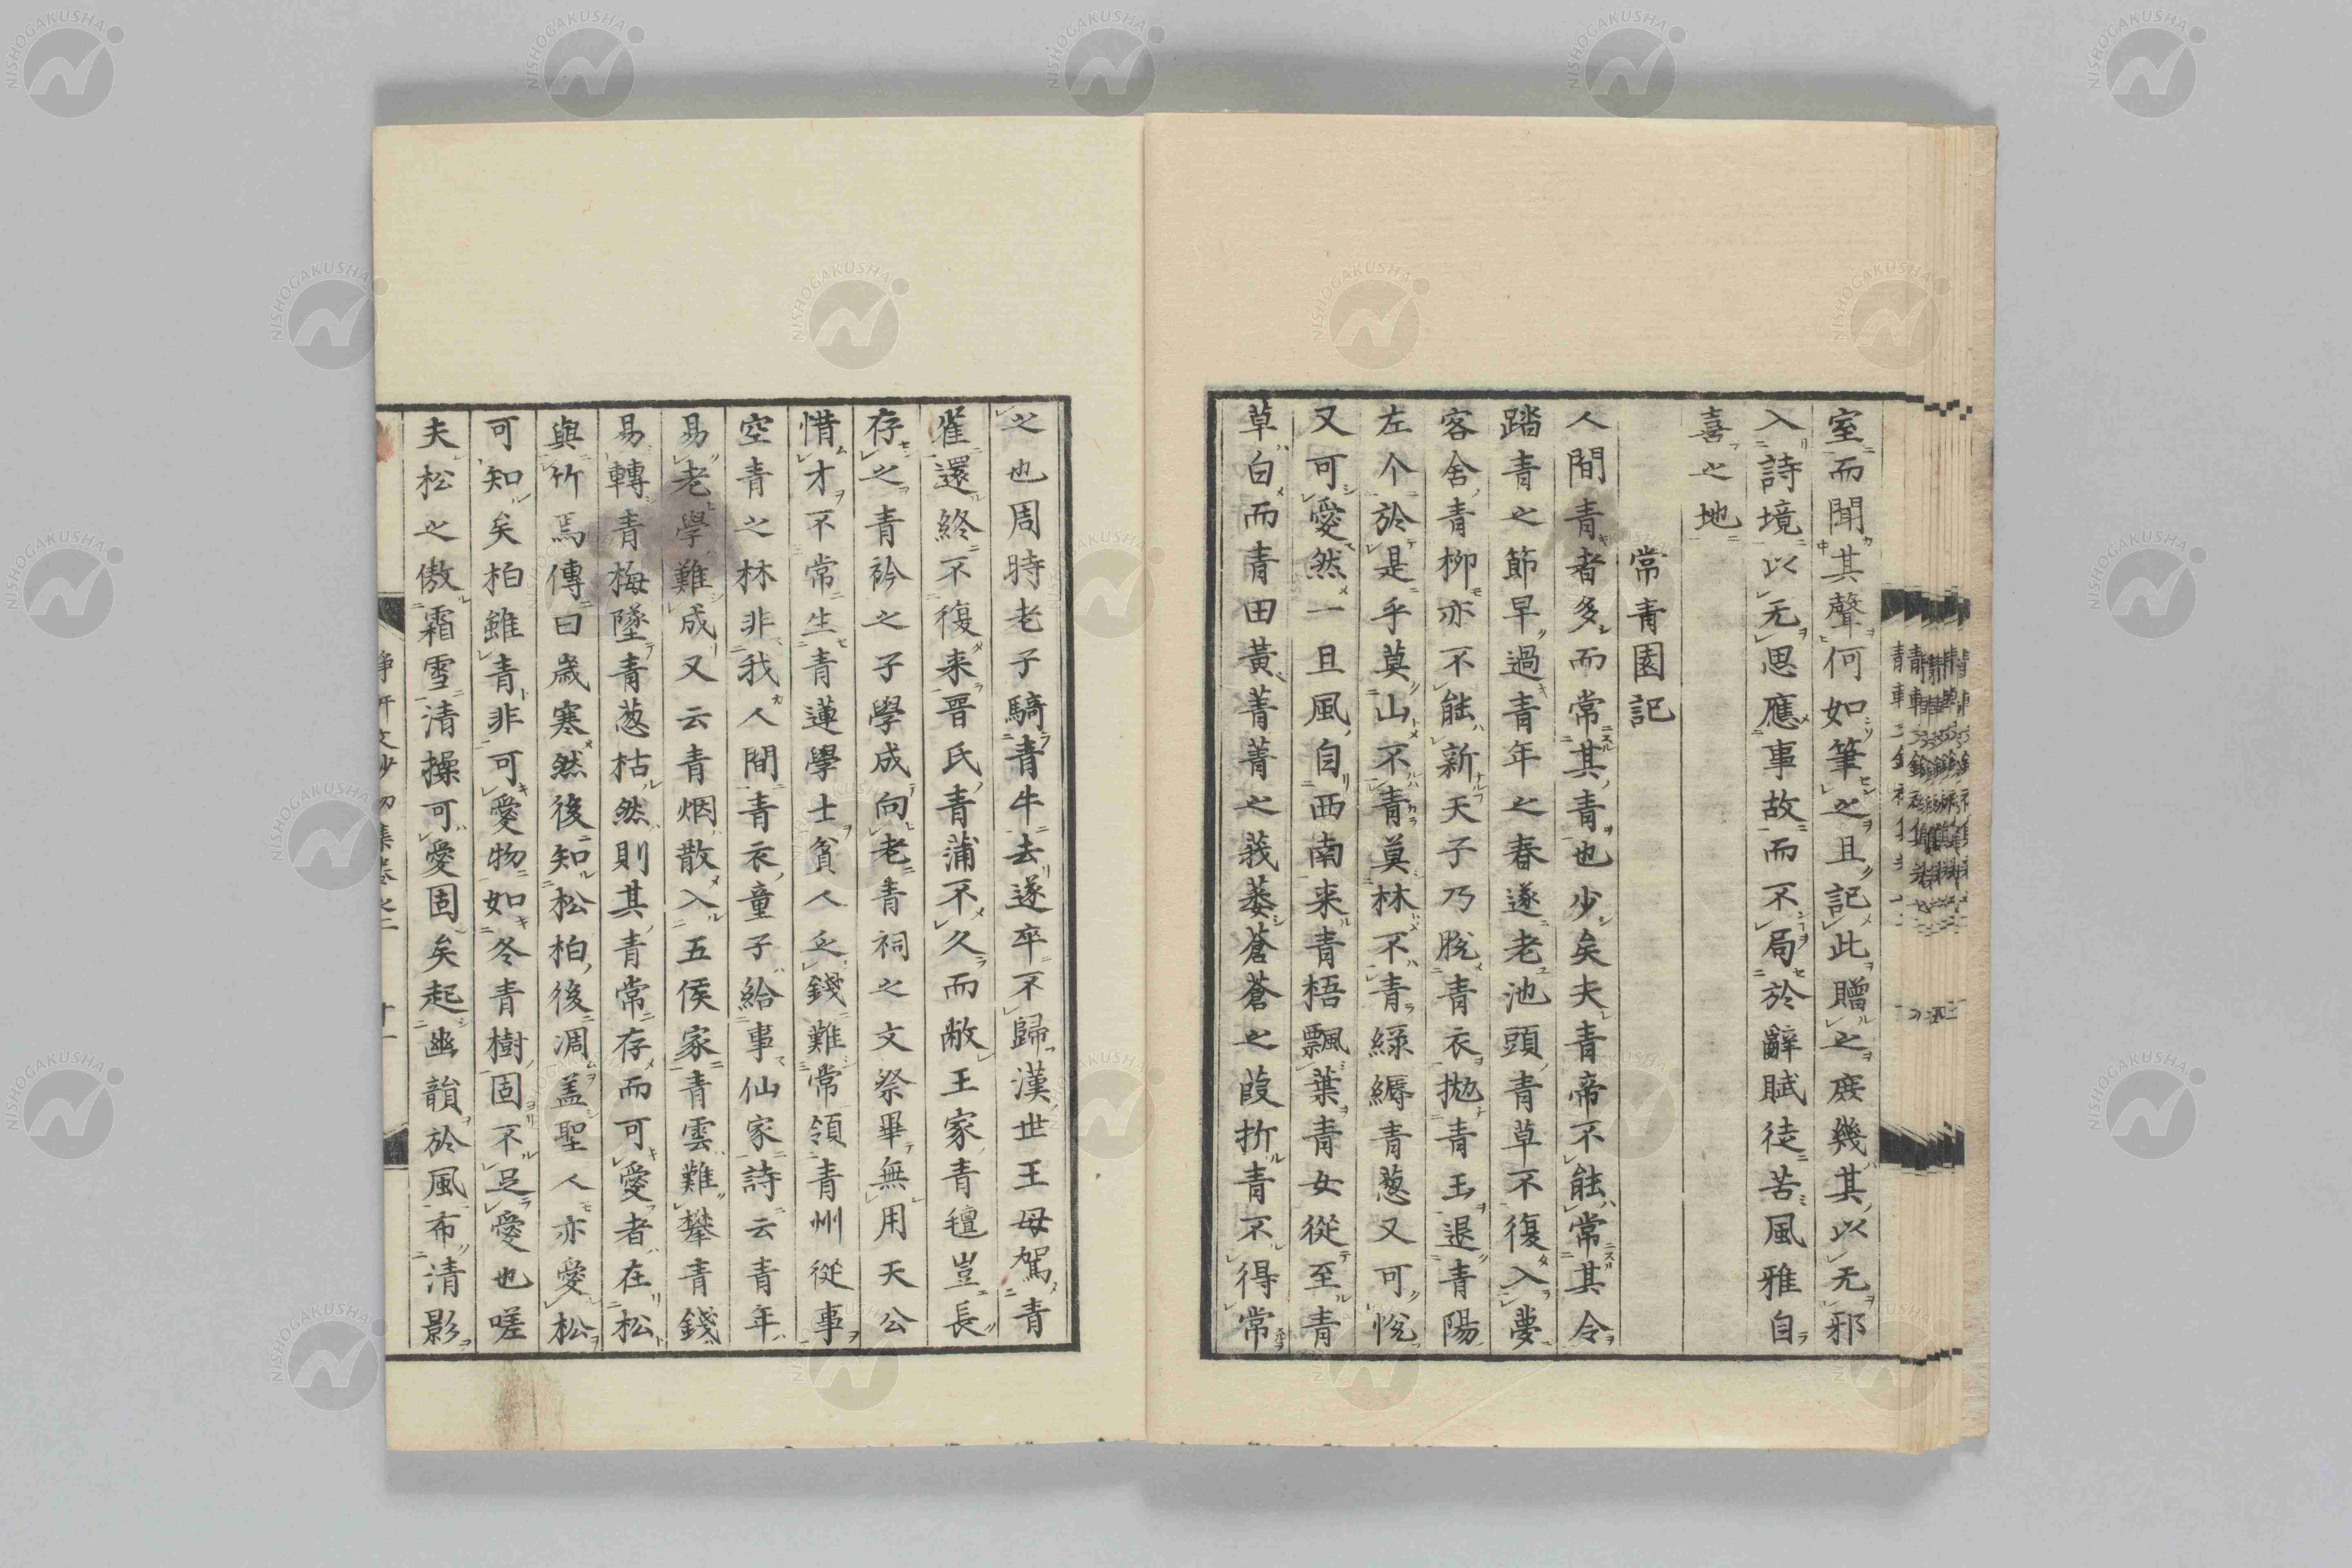 室而聞其聲何如筆之且記此贈之庶幾其以无邪
入詩境以无思應事故而不局於辭賦徒苦風雅自
喜之地
常青園記
人間青者多而常其青也少矣夫青帝不能常其令
踏青之節早過青年之春遂老池頭青草不復入夢
客舍青柳亦不能新天子乃脫青衣拋青玉退青陽
左个於是乎莫山不青莫林不青綠縟青葱又可悅
又可愛然一旦風自西南来青梧飄葉青女從至青
草白而青田黃菁菁之莪萎蒼蒼之葭折青不得常
之也周時老子騎青牛去遂卒不歸漢世王母駕青
雀還終不復来晋氏青蒲不久而敝王家青氊豈長
存之青衿之子學成向老青祠之文祭畢無用天公
惜才不常生青蓮學士貧人乏錢難常領青州從事
空青之林非我人間青衣童子給事仙家詩云青年
易老學難成又云青烟散入五侯家青雲難攀青錢
易轉青梅墜青葱枯然則其青常存而可愛者在松
與竹焉傳曰歲寒然後知松柏後凋盖聖人亦愛松
可知矣柏雖青非可愛物如冬青樹固不足愛也嗟
夫松之傲霜雪清操可愛固矣起幽韻於風布清影
NISHOGAKUSHA